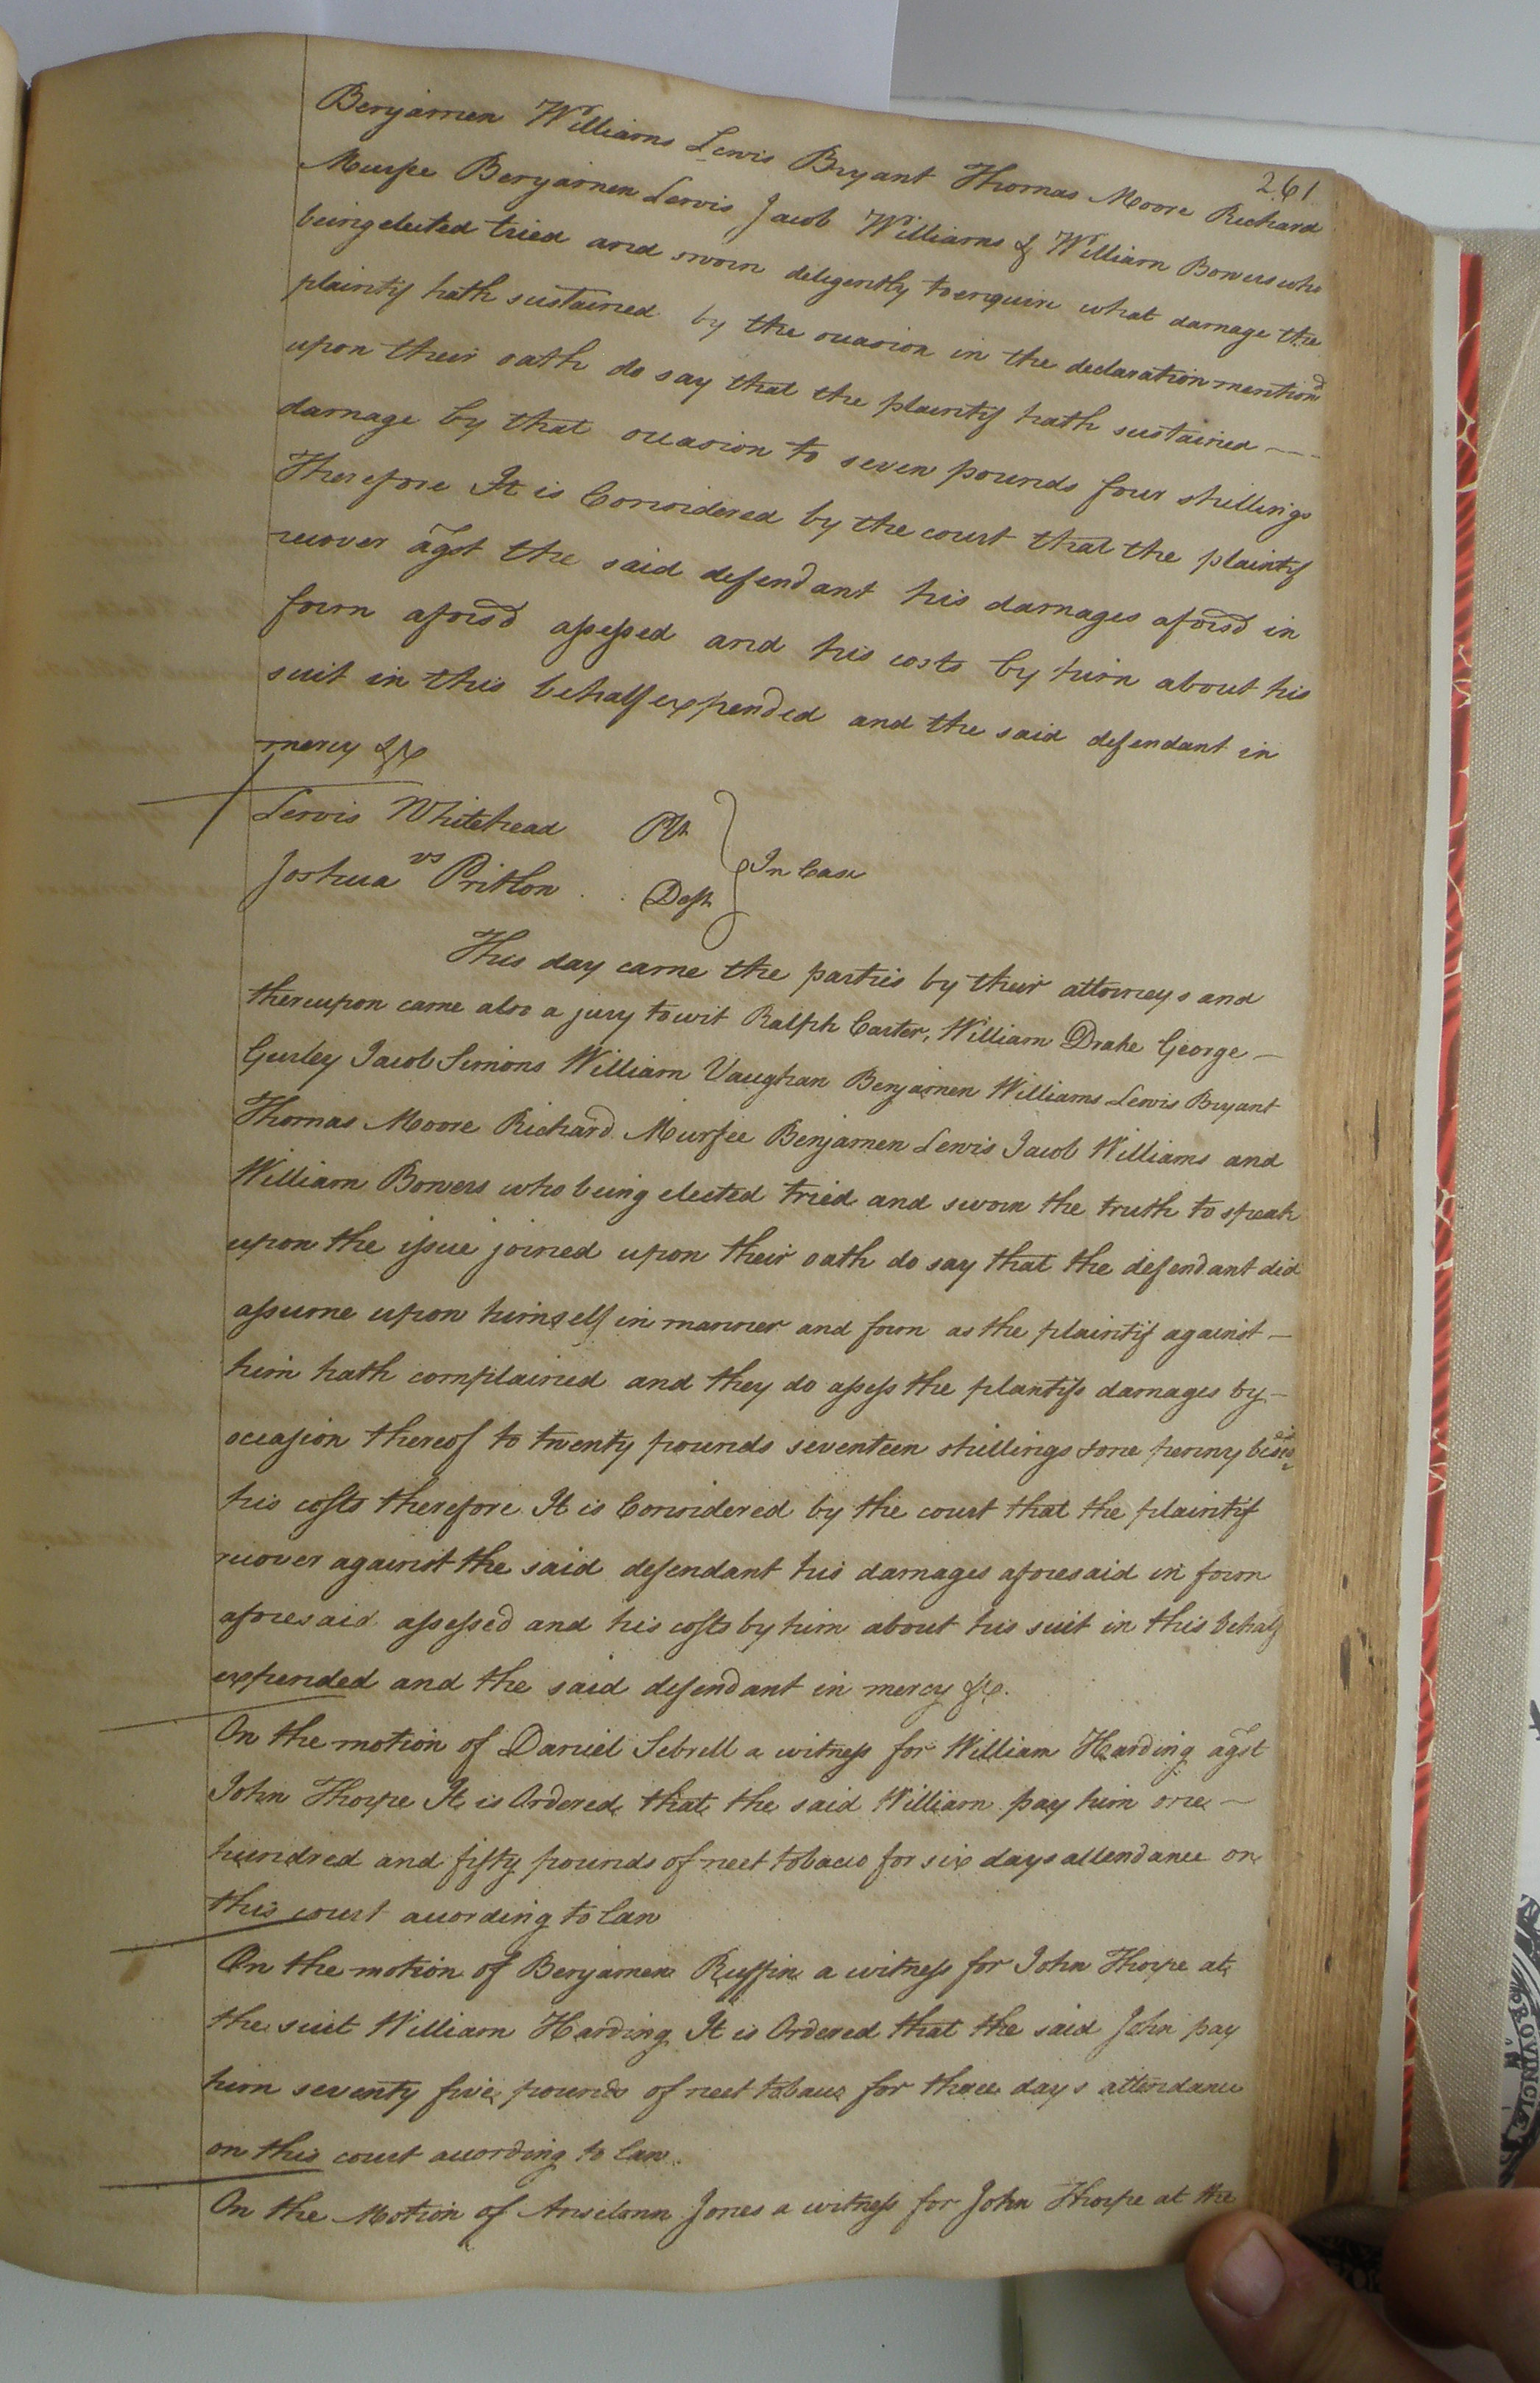 261
Benjamen Williams Lewis Bryant Thomas Moore Richard
Murfee Benjamen Lewis Jacob Williams & William Bowers who
being elected tried and sworn deligently to enquire what damage the
plaintif hath sustained by the occasion in the declaration mention'd
upon their oath do say that the plaintif hath sustained
damage by that occasion to seven pounds four shillings
Therefore It is Considered by the court that the plaintif
recover agst the said defendant his damages aforsd in
form aforsd assessed and his costs by him about his
suit in this behalf expended and the said defendant in
mercy &c
Lewis Whitehead Plt
vs In Case
Joshua Deft
This day came the parties by their attorneys and
thereupon came also a jury towit Ralph Carter, William Drake George
Gurley Jacob Simons William Vaughan Benjamen Williams Lewis Bryant
Thomas Moore Richard Murfee Benjamen Lewis Jacob Williams and
William Bowers who being elected tried and sworn the truth to speak
upon the issue joined upon their oath do say that the defendant did
assume upon himself in manner and form as the plaintif against
him hath complained and they do assess the plantifs damages by
occasion thereof to twenty pounds seventeen shillings & one penny besids
his costs therefore It is Considered by the court that the plaintif
recover against the said defendant his damages aforesaid in form
aforesaid assessed and his costs by him about his suit in this behalf
expended and the said defendant in mercy &c.
On the motion of Daniel Sebrell a witness for William Harding agst
John Thorpe It is Ordered that the said William pay him one
hundred and fifty pounds of neet tobacco for six days attendance on
this court according to law
On the motion of Benjamen Ruffin a witness for John Thorpe at
the suit William Harding It is Ordered that the said John pay
him seventy five pounds of neet tobacco for three days attendance
on this court according to law.
On the Motion of Jones a witness for John Thorpe at the